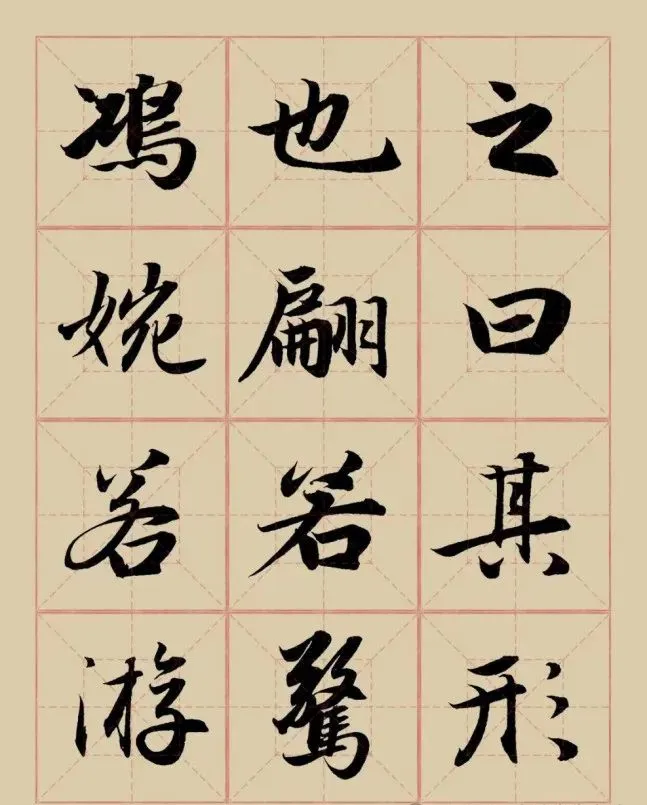 之曰其形
也翩若驚
鴻婉若游